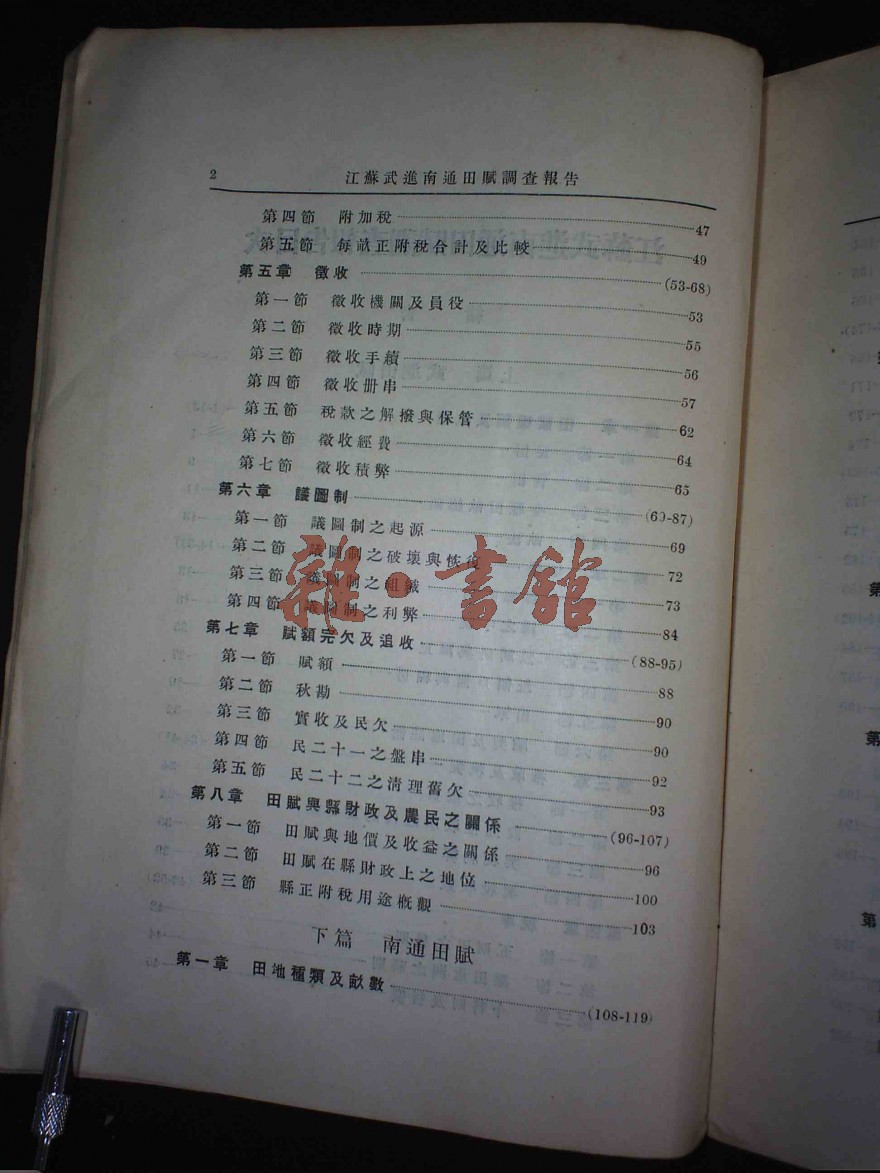 2 江蘇武進南通田賦調查報告
第四節 附加稅 47
第五節 每畝正附稅合計及比較 49
第五章 徵收 (53-68)
第一節 徵收機關及員役 53
第二節 徵收時期 55
第三節 徵收手續 56
第四節 徵收册串 57
第五節 稅款之解撥與保管 62
第六節 徵收經費 64
第七節 徵收積弊 65
第六章 議圖制 (69-87)
第一節 議圖制之起源 69
第二節 議圖制之破壞與恢復 72
第三節 議圖制之組織 73
第四節 議圖制之利弊 84
第七章 賦額完欠及追收 (88-95)
第一節 賦額 88
第二節 秋勘 90
第三節 實收及民欠 90
第四節 民二十一之盤串 92
第五節 民二十二之清理舊欠 93
第八章 田賦與縣財政及農民之關係 (96-107)
第一節 田賦與地價及收益之關係 96
第二節 田賦在縣財政上之地位 100
第三節 縣正附稅用途概觀 103
下篇 南通田賦
第一章 田地種類及畝數 (108-119)
雜·書館